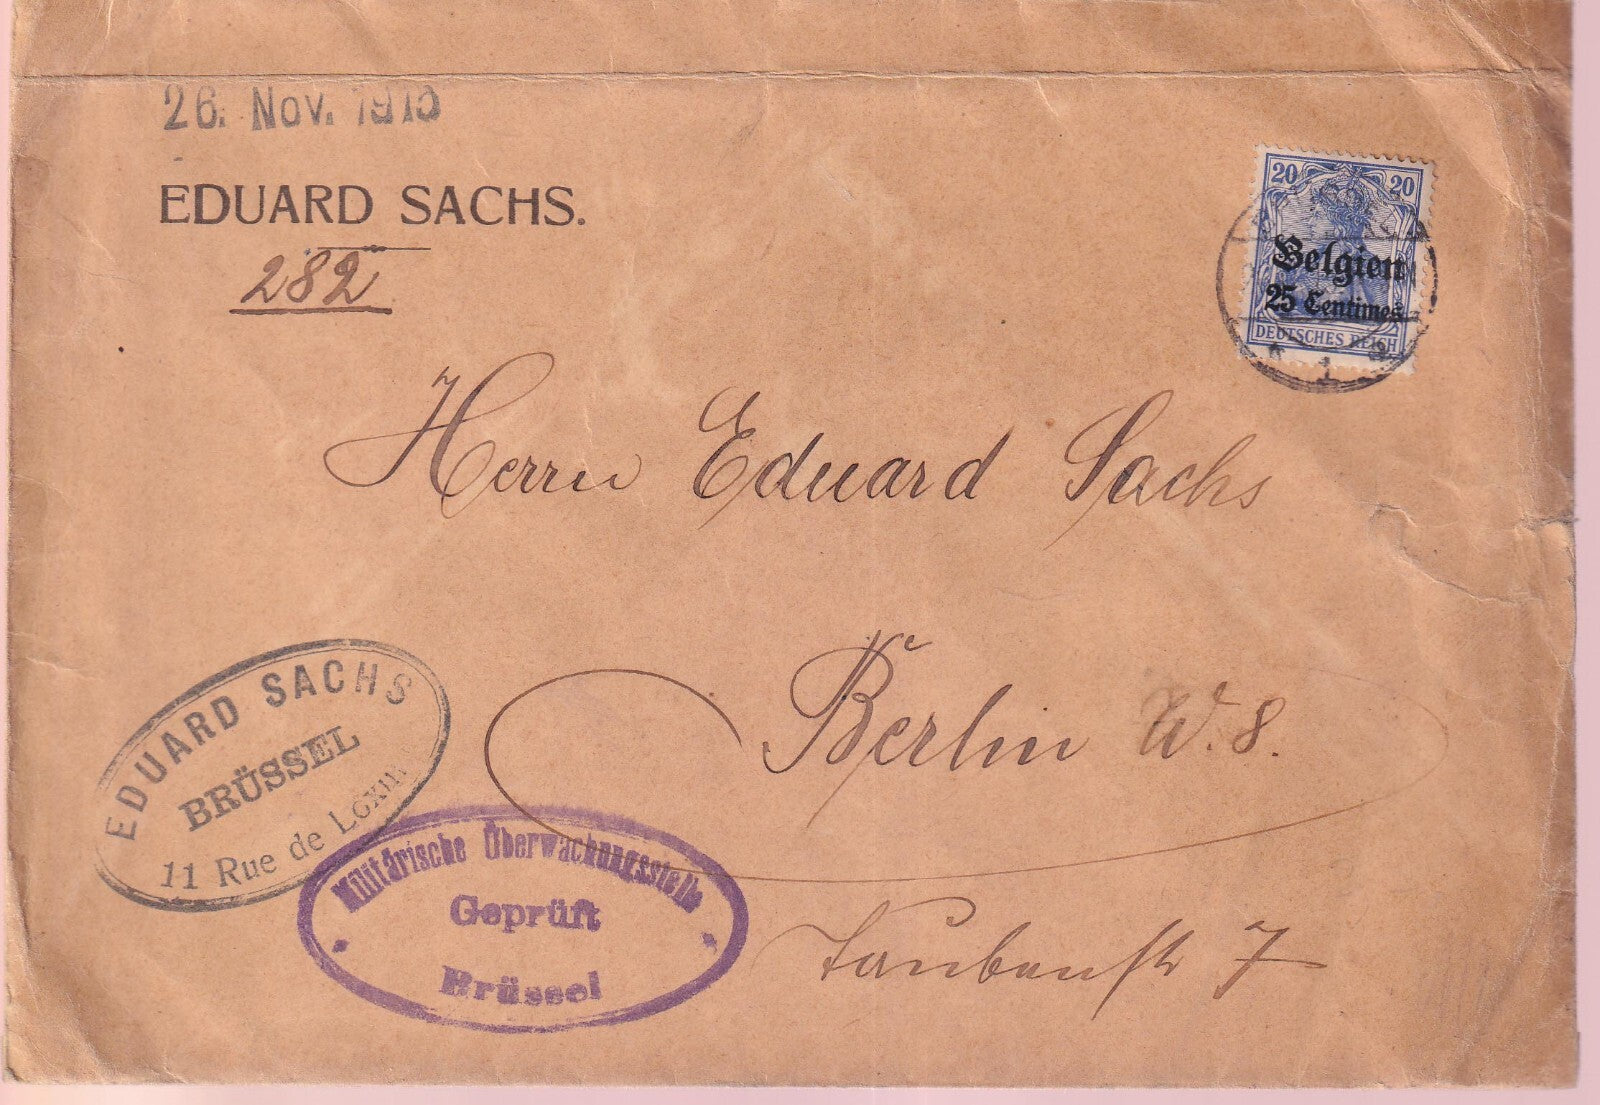 26. Nov. 1915
EDUARD SACHS.
282
20 20
Belgien
25 Centimes
DEUTSCHES REICH
1
Herrn Eduard Sachs
Berlin W. 8.
Taubenstr 7
EDUARD SACHS
BRÜSSEL
11 Rue de Loxum
Militärische Überwachungsstelle
Geprüft
Brüssel